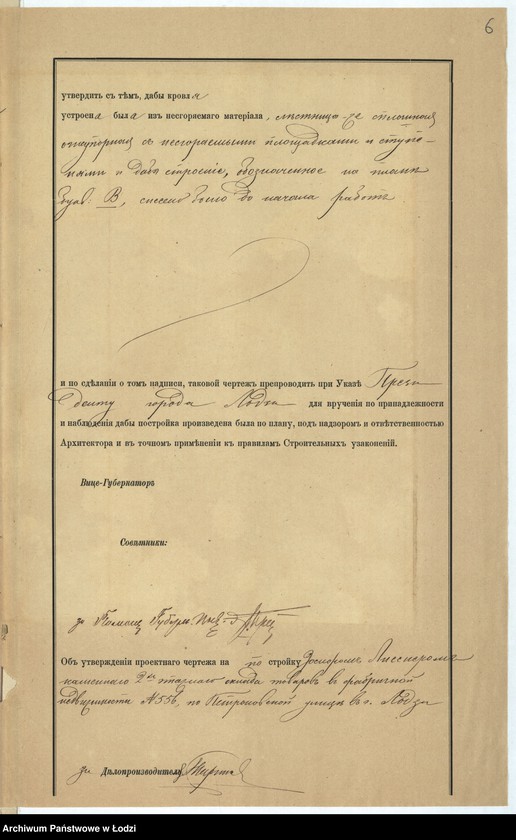 6
утвердить съ тѣмъ, дабы кровля
устроена была изъ несгораемаго матеріала, лѣстница-же сплошная
съ несгораемыми площадками и ступе-
нями и дабы строеніе, обозначенное на планѣ
букв. В, снесено было до начала работъ
и по сдѣланіи о томъ надписи, таковой чертежъ препроводить при Указѣ Прези-
денту города Лодзи для врученія по принадлежности
и наблюденія дабы постройка произведена была по плану, подъ надзоромъ и отвѣтственностью
Архитектора и въ точномъ примѣненіи къ правиламъ Строительныхъ узаконеній.
Вице-Губернаторъ
Совѣтники:
за Помощ. Губерн.
Объ утвержденіи проектнаго чертежа на постройку
каменнаго 2хъ этажнаго склада товаровъ въ фабричной
недвижимости № 556, по Петроковской улицѣ въ г. Лодзи
за Дѣлопроизводителя
Archiwum Państwowe w Łodzi